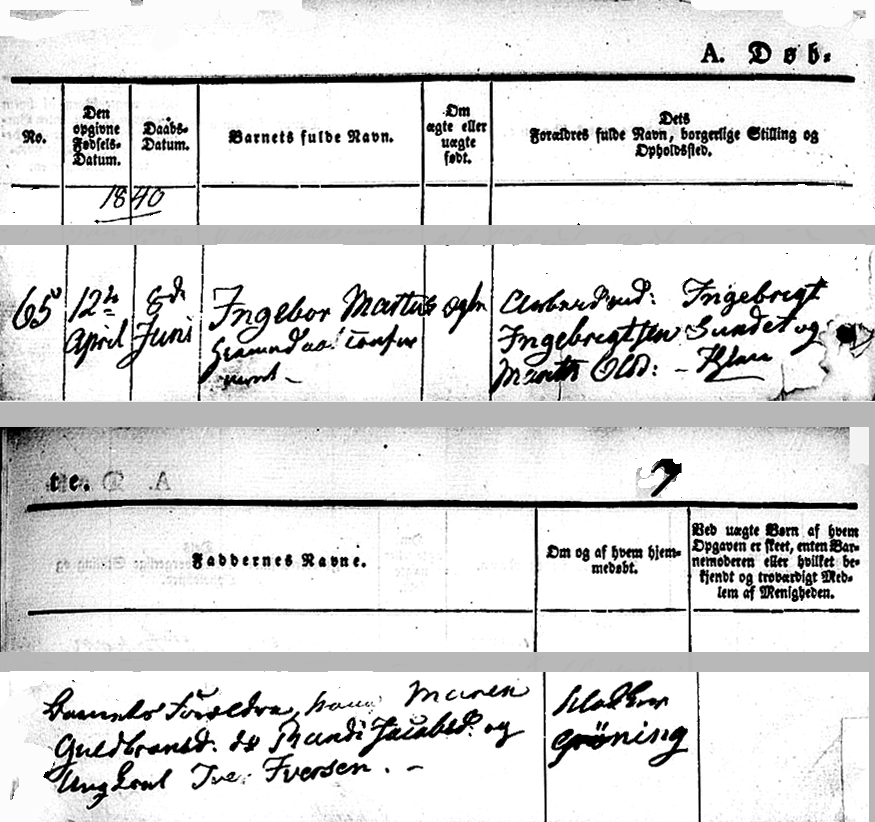 A. Døb-
No.
Den
opgivne
Fødsels-
Datum.
Daabs-
Datum.
Barnets fulde Navn.
Om
ægte eller
uægte
født.
Dets
Forældres fulde Navn, borgerlige Stilling og
Opholdssted.
1840
65
12te
April
8de
Juni
Ingebor
ægte
Arbeidsmd: Ingebrigt
Ingebrigtsen Sundet og
Marith Olsd:
te.
7
Faddernes Navne.
Om og af hvem hjem-
medøbt.
Ved uægte Børn af hvem
Opgaven er skeet, enten Bar-
nemoderen eller hvilket be-
kjendt og troværdigt Med-
lem af Menigheden.
Barnets Forældre, Maren
Guldbransd. do Randi Jacobsd. og
Ungkarl Iver Iversen. -
Klokker
Grøning